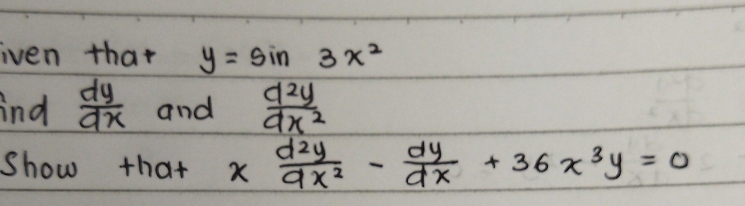 iven that y = sin 3x²
ind dy/dx and d²y/dx²
Show that x d²y/dx² - dy/dx + 36x³y = 0